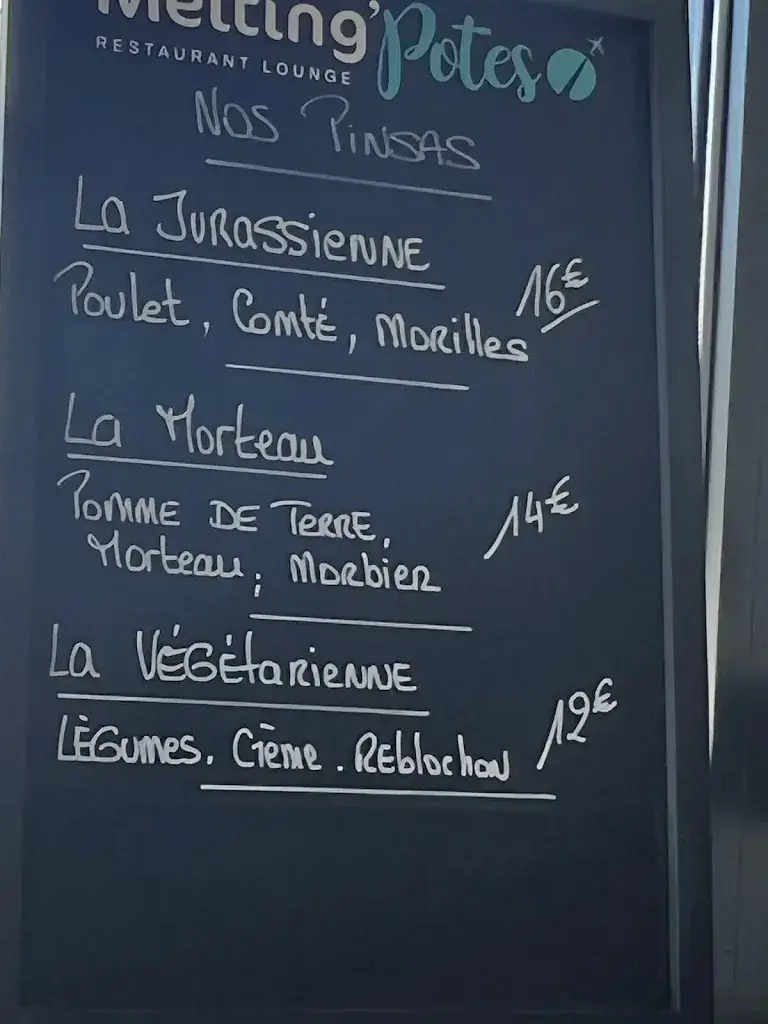 Melting'Potes
RESTAURANT LOUNGE
NOS PINSAS
La JURASSIENNE
16€
Poulet, Comté, MORILLES
La Morteau
POMME DE TERRE,
14€
Morteau, MORBIER
La VÉGÉtARIENNE
12€
LÈGUMES. Crème. REBlochon